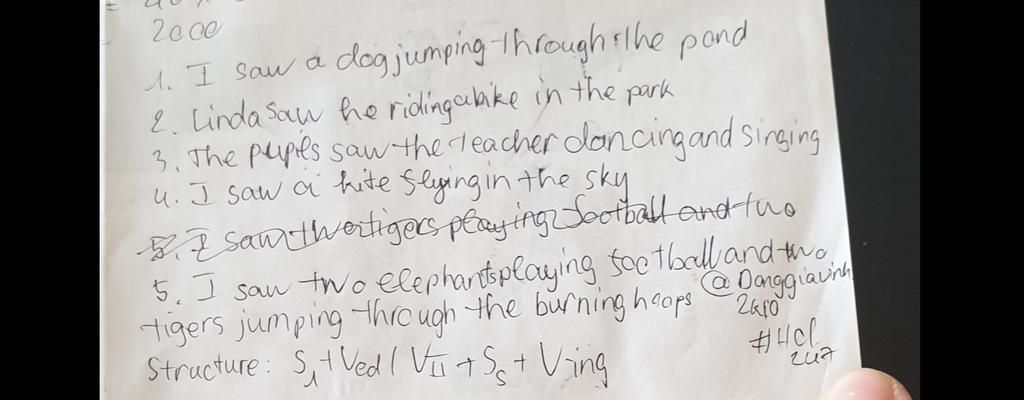 2000
1. I saw a dog jumping through the pond
2. Linda saw he riding a bike in the park
3. The pupils saw the teacher dancing and singing
4. I saw a kite flying in the sky
5. I saw two tigers playing football and two
5. I saw two elephants playing football and two
tigers jumping through the burning hoops
@Donggiavinh
2k10
#HCl
247
Structure: S1 + Ved / VII + Ss + Ving